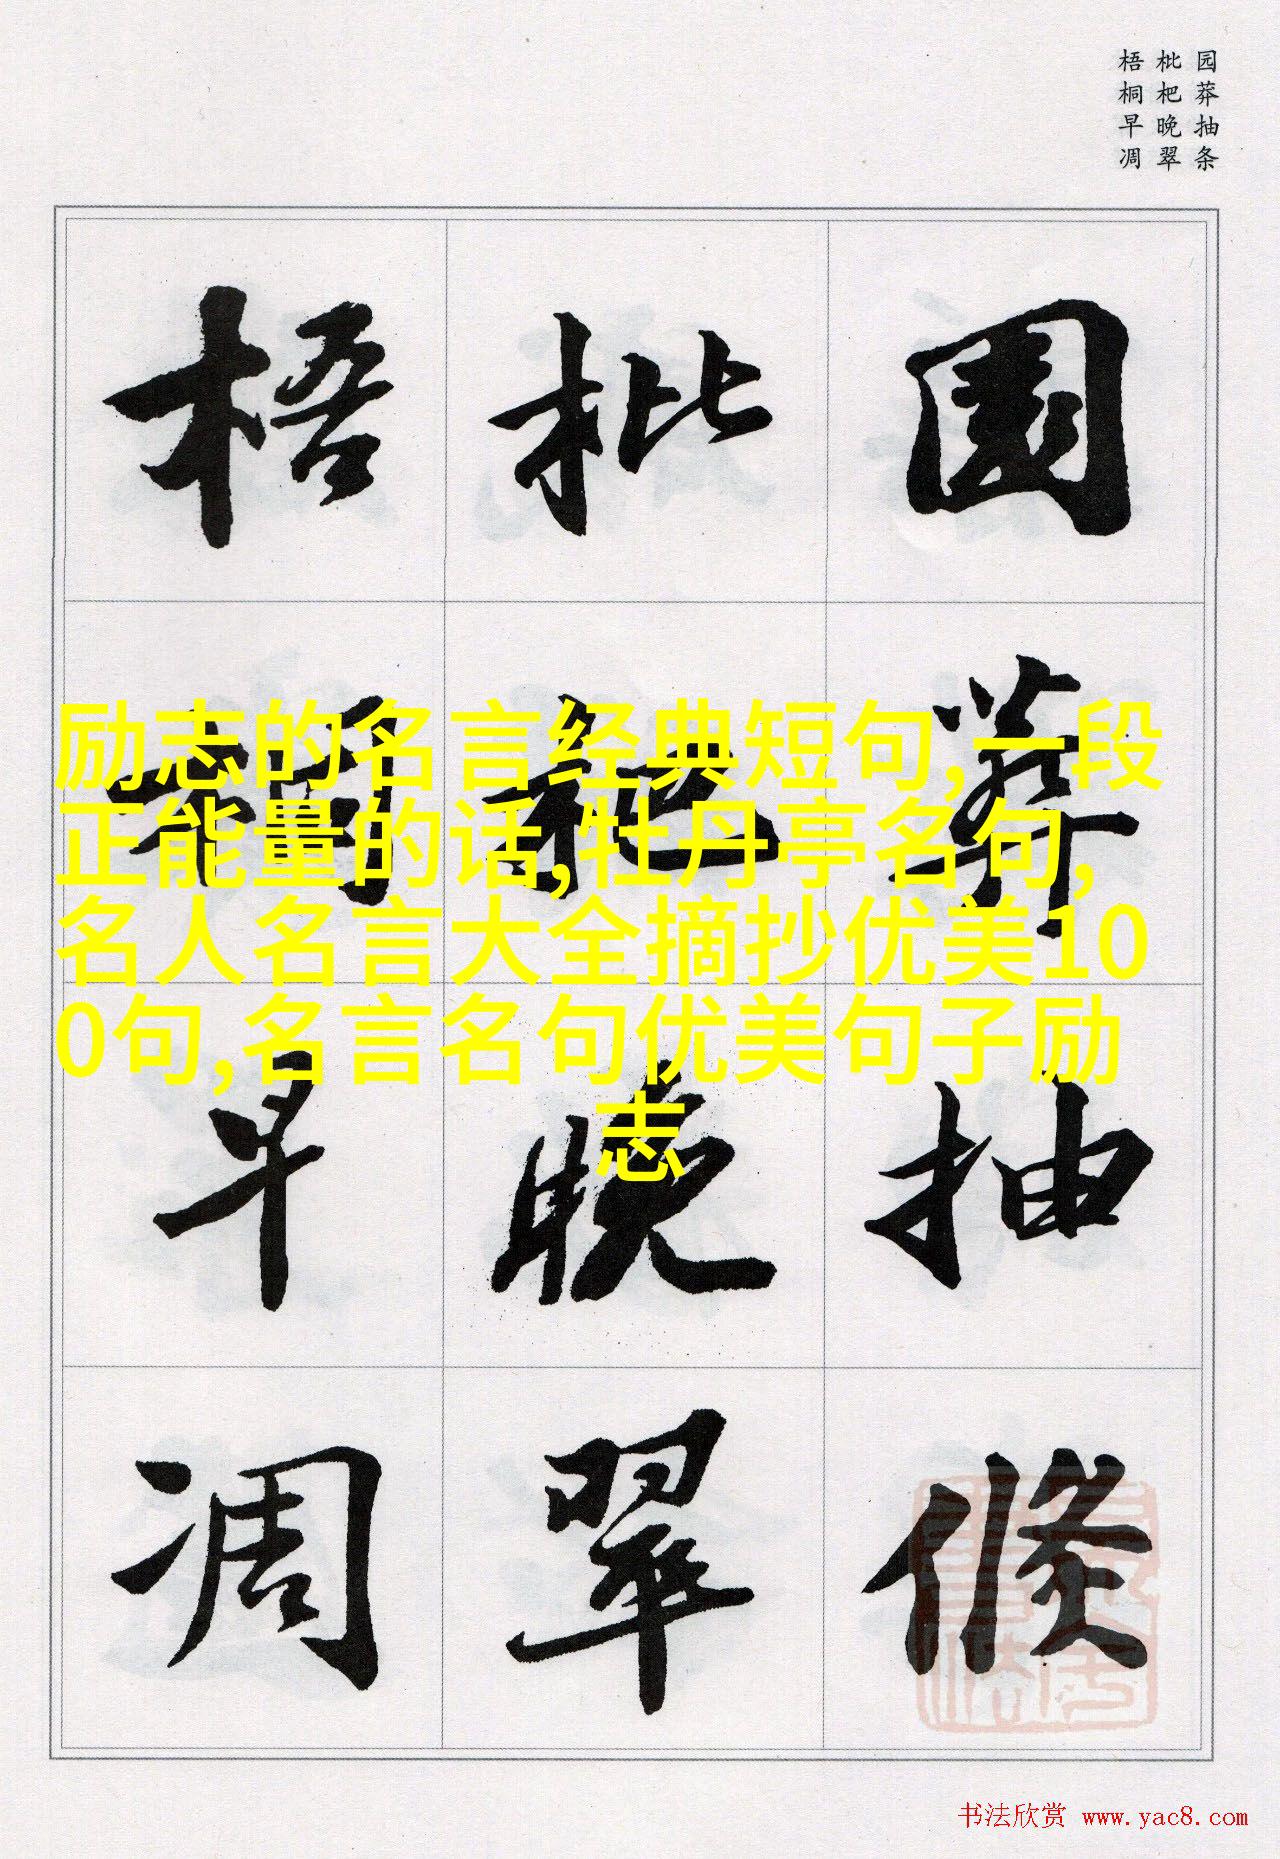 园莽抽条
枇杷晚翠
梧桐早凋
園莽抽條
枇杷晚翠
梧桐早凋
励志的名言经典短句,一段
正能量的话,牡丹亭名句,
名人名言大全摘抄优美10
0句,名言名句优美句子励
志
书法欣赏 www.yac8.com